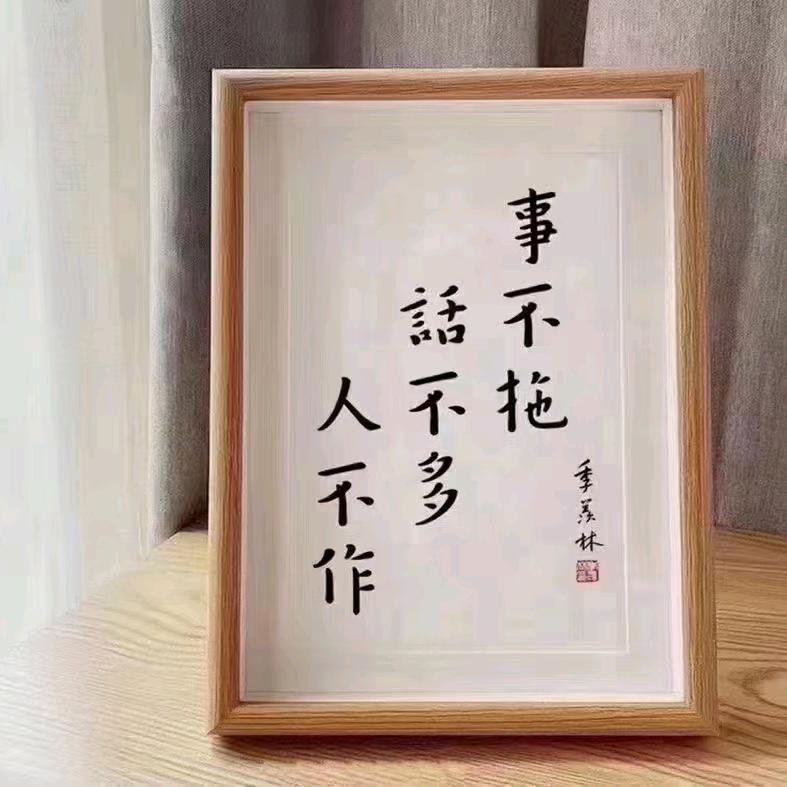 事不拖
話不多
人不作
季羨林